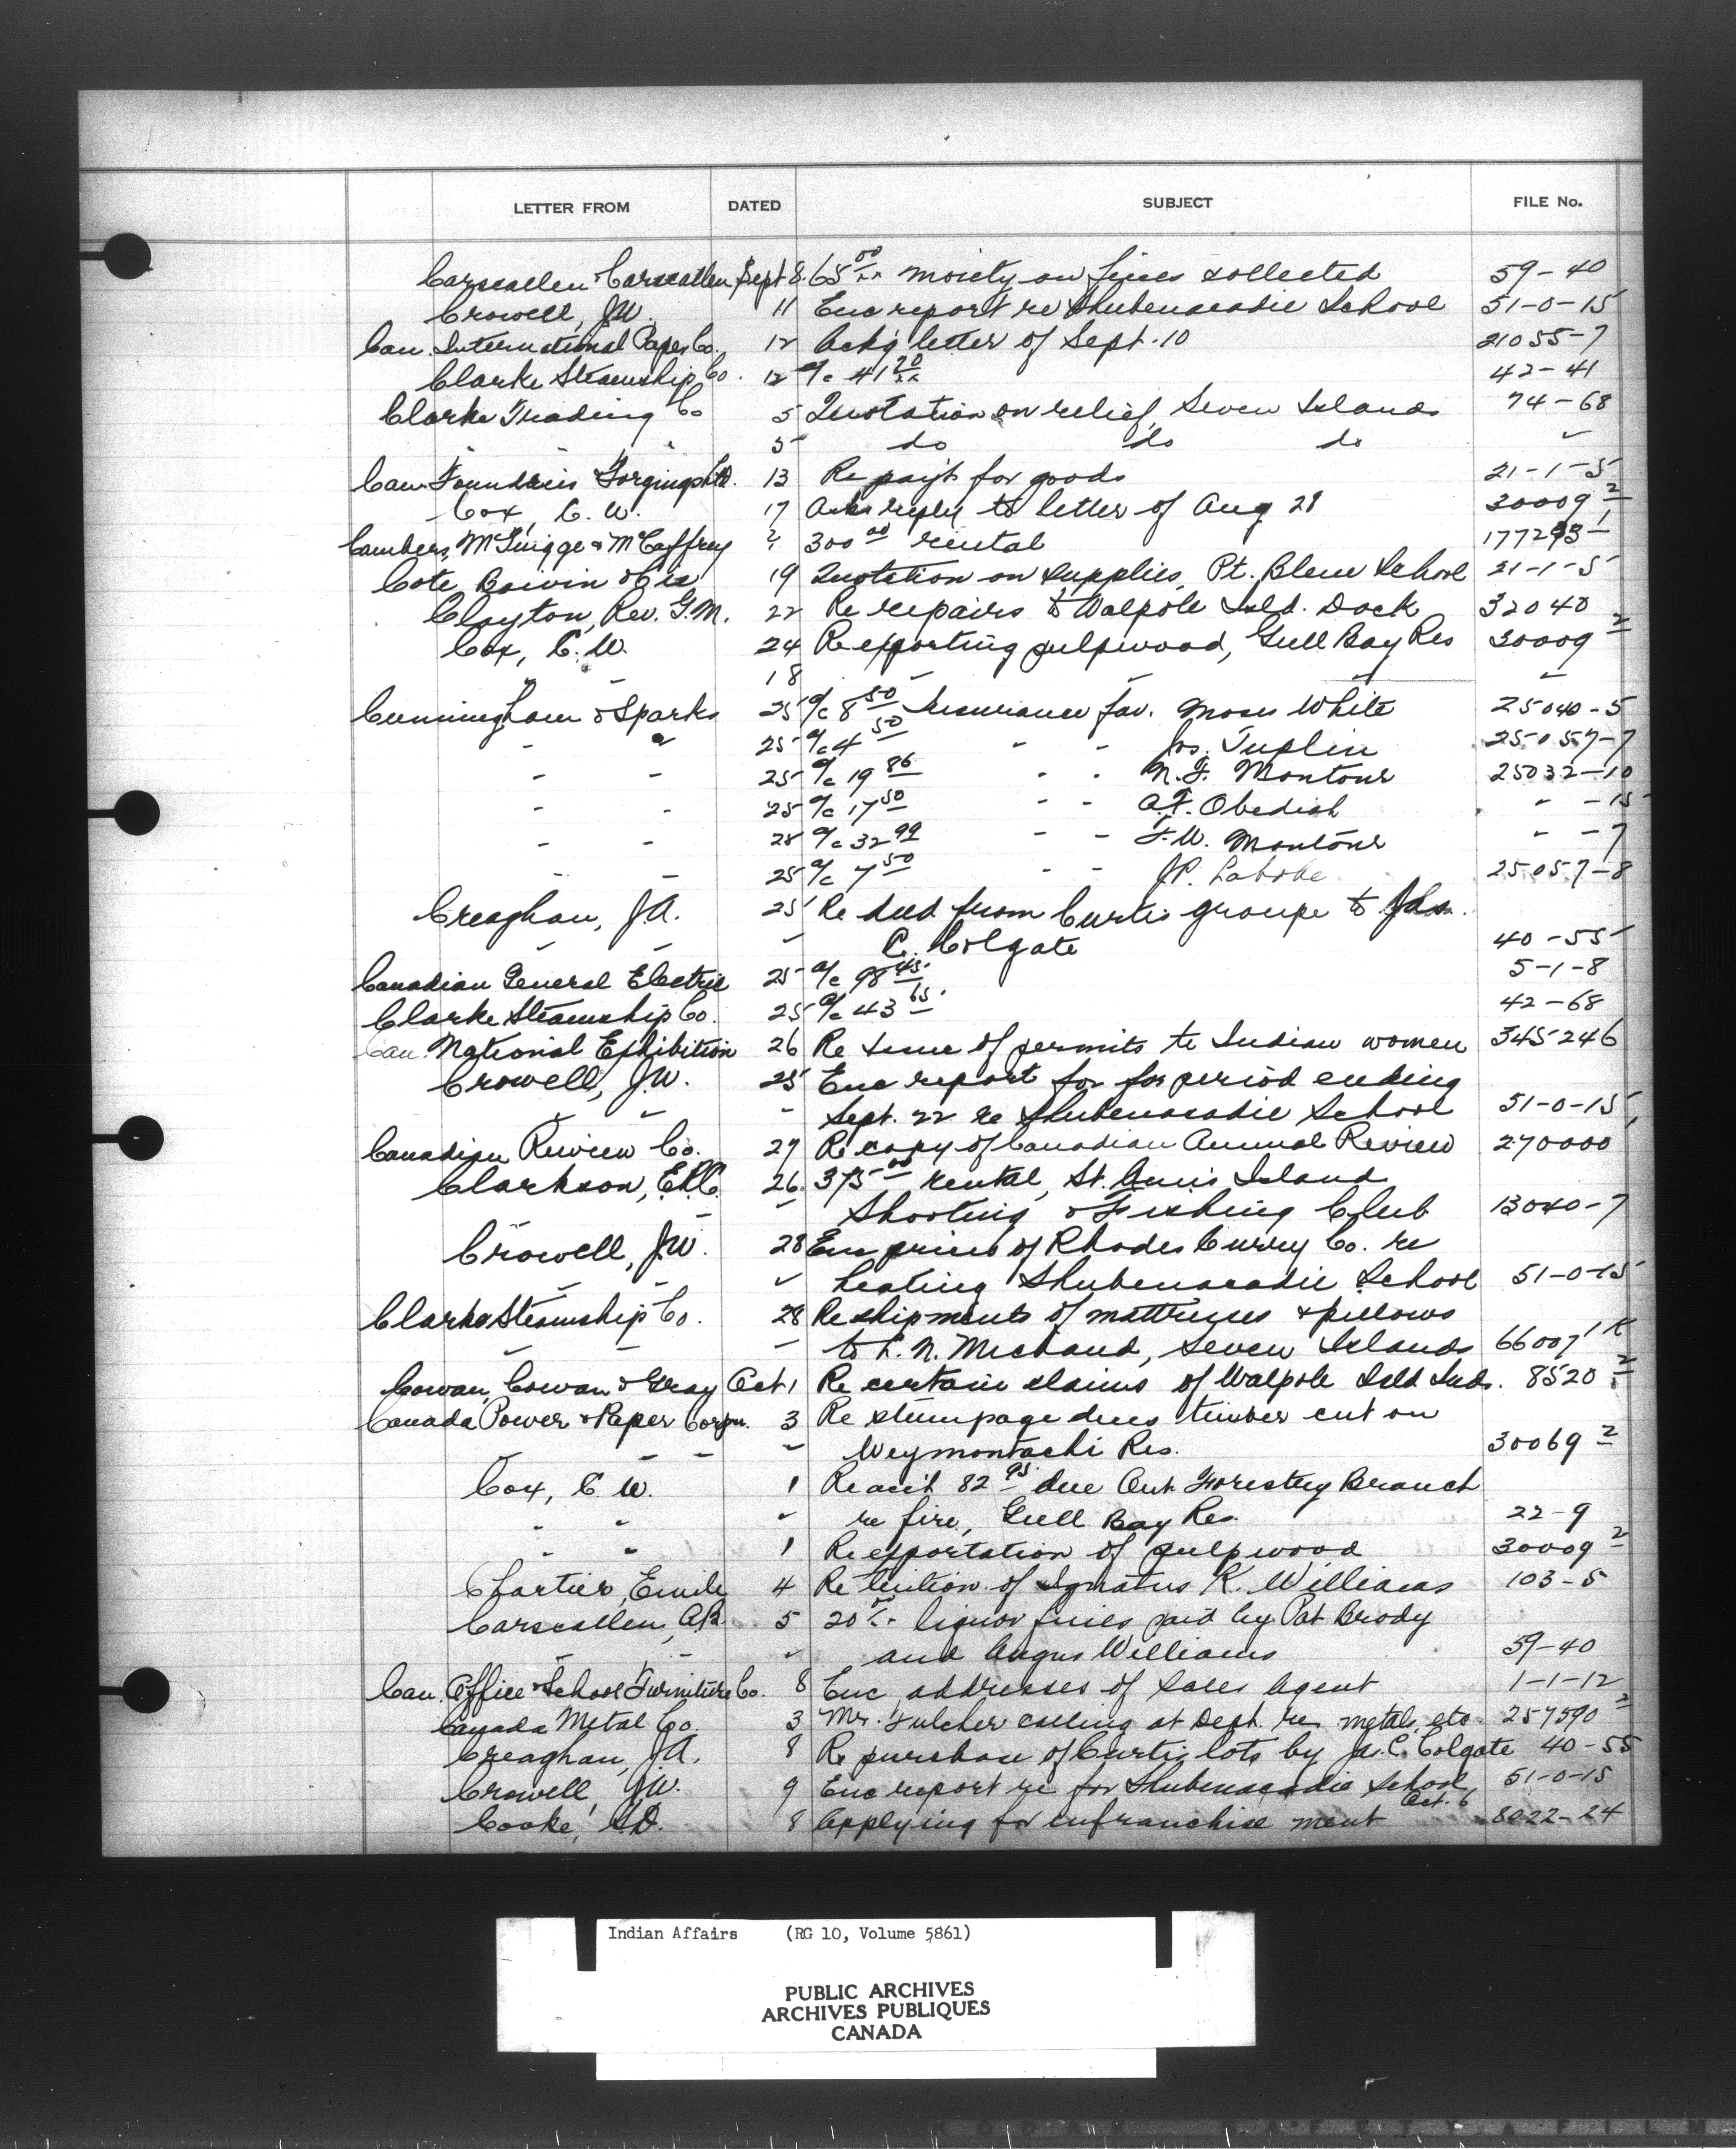 LETTER FROM DATED SUBJECT FILE No.
Carscallen & Carscallen Sept 8 65 00/xx moiety on fines collected 59-40
Crowell, J.W. 11 Enc report re Shubenacadie School 51-0-15
Can. International Paper Co. 12 Ackg letter of Sept. 10 21055-7
Clarke Steamship Co. 12 a/c 41 20/xx 42-41
Clarke Trading Co 5 Quotation on relief, Seven Islands 74-68
" " " 5 do do do "
Can Foundries Forgings Ltd. 13 Re pay't for goods 21-1-5
Cox, C.W. 17 Asks reply to letter of Aug 28 30009 2
& McCaffrey 300 00 rental 177293 1
Cote Boivin & Cie 19 Quotation on supplies, Pt. Bleue School 21-1-5
Clayton, Rev. G.M. 22 Re repairs to Walpole Isld. Dock 32040
Cox, C.W. 24 Re exporting pulpwood, Gull Bay Res 30009 2
" " 18 " " " "
Cunningham & Sparks 25 a/c 8 50 Insurance fav. Moses White 25040-5
" " 25 a/c 4 50 " " Jos. Tuplin 25057-7
" " 25 a/c 19 86 " " N.F. Montour 25032-10
" " 25 a/c 17 50 " " A.F. Obediah " -15
" " 25 a/c 32 99 " " F.W. Montour " -7
" " 25 a/c 7 50 " " J.P. Labobe 25057-8
Creaghan, J.A. 25 Re deed from Curtis groupe to Jas.
" " " C. Colgate 40-55
Canadian General Electric 25 a/c 98 45 5-1-8
Clarke Steamship Co. 25 a/c 43 65 42-68
Can. National Exhibition 26 Re issue of permits to Indian women 345246
Crowell, J.W. 25 Enc report for for period ending
" " " Sept. 22 re Shubenacadie School 51-0-15
Canadian Review Co. 27 Re copy of Canadian Annual Review 270000
Clarkson, E.R.C. 26 375 00 rental, St. Annis Island
" " " Shooting & Fishing Club 13040-7
Crowell, J.W. 28 Enc prices of Rhodes Curry Co. re
" " " heating Shubenacadie School 51-0-15
Clarke Steamship Co. 28 Re shipments of mattresses & pillows
" " " to L.N. Michaud, Seven Islands 66007 1 K
Cowan, Cowan & Gray Oct 1 Re certain claims of Walpole Isld Inds. 8520 2
Canada Power & Paper Corpn. 3 Re stumpage dues timber cut on
" " " Weymontachi Res. 30069 2
Cox, C.W. 1 Re acc't 82 95 due Ont. Forestry Branch
" " " re fire, Gull Bay Res. 22-9
" " 1 Re exportation of pulpwood 30009 2
Chartier, Emile 4 Re tuition of Ignatus K. Williams 103-5
Carscallen, A.B. 5 20 00/xx liquor fines paid by Pat Brody
" " " and Angus Williams 59-40
Can. Office & School Furniture Co. 8 Enc addresses of sales agent 1-1-12
Canada Metal Co. 3 Mr. Fulcher calling at Dept. re metals, etc. 257590 2
Creaghan, J.A. 8 Re purchase of Curtis lots by Jas. C. Colgate 40-55
Crowell, J.W. 9 Enc report re for Shubenacadie School, Oct. 6 51-0-15
Cooke, 8 Applying for enfranchise ment 8022-24
Indian Affairs (RG 10, Volume 5861)
PUBLIC ARCHIVES
ARCHIVES PUBLIQUES
CANADA